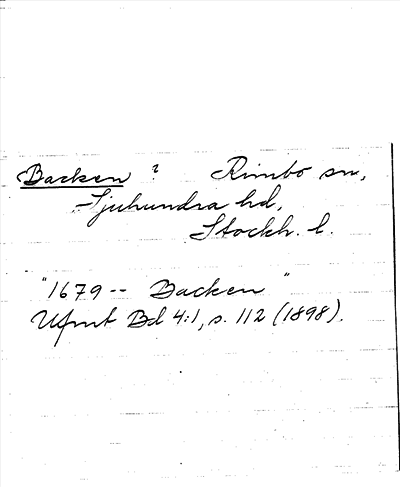 Backen ? Rimbo sn,
Sjuhundra hd,
Stockh. l.
"1679 -- Backen"
Ufmt Bd 4:1, s. 112 (1898).